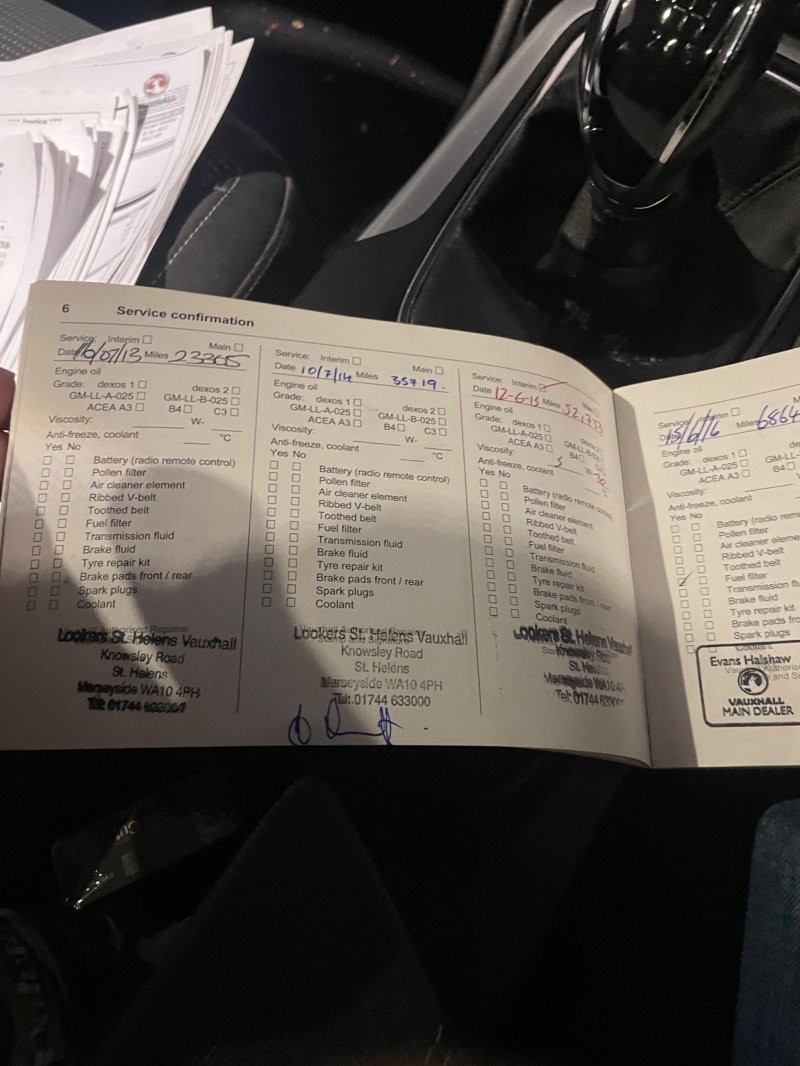 6 Service confirmation
Service: Interim Main
Date 16/07/13 Miles 23365
Engine oil
Grade: dexos 1 dexos 2
GM-LL-A-025 GM-LL-B-025
ACEA A3 B4 C3
Viscosity: W-
Anti-freeze, coolant °C
Yes No
Battery (radio remote control)
Pollen filter
Air cleaner element
Ribbed V-belt
Toothed belt
Fuel filter
Transmission fluid
Brake fluid
Tyre repair kit
Brake pads front / rear
Spark plugs
Coolant
Lookers St. Helens Vauxhall
Knowsley Road
St. Helens
Merseyside WA10 4PH
Tel: 01744 633000
Service: Interim Main
Date 10/7/14 Miles 35719.
Engine oil
Grade: dexos 1 dexos 2
GM-LL-A-025 GM-LL-B-025
ACEA A3 B4 C3
Viscosity: W-
Anti-freeze, coolant °C
Yes No
Battery (radio remote control)
Pollen filter
Air cleaner element
Ribbed V-belt
Toothed belt
Fuel filter
Transmission fluid
Brake fluid
Tyre repair kit
Brake pads front / rear
Spark plugs
Coolant
Lookers St. Helens Vauxhall
Knowsley Road
St. Helens
Merseyside WA10 4PH
Tel: 01744 633000
Service: Interim
Date 12-6-15 Miles
Engine oil
Grade: dexos 1
GM-LL-A-025
ACEA A3 B4
Viscosity: 5 W- 30
Anti-freeze, coolant
Yes No
Battery (radio remote
Pollen filter
Air cleaner element
Ribbed V-belt
Toothed belt
Fuel filter
Transmission fluid
Brake fluid
Tyre repair kit
Brake pads front / rear
Spark plugs
Coolant
Lookers St. Helens Vauxhall
Knowsley Road
St.
Merseyside WA10
Tel: 01744
Service: Interim
Date 15/6/16 Miles
Engine oil
Grade: dexos 1
GM-LL-A-025
ACEA A3 B4
Viscosity:
Anti-freeze, coolant
Yes No
Battery (radio
Pollen filter
Air cleaner
Ribbed V-belt
Toothed belt
Fuel filter
Transmission
Brake fluid
Tyre repair kit
Brake pads
Spark plugs
Coolant
Evans Halshaw
VAUXHALL
MAIN DEALER